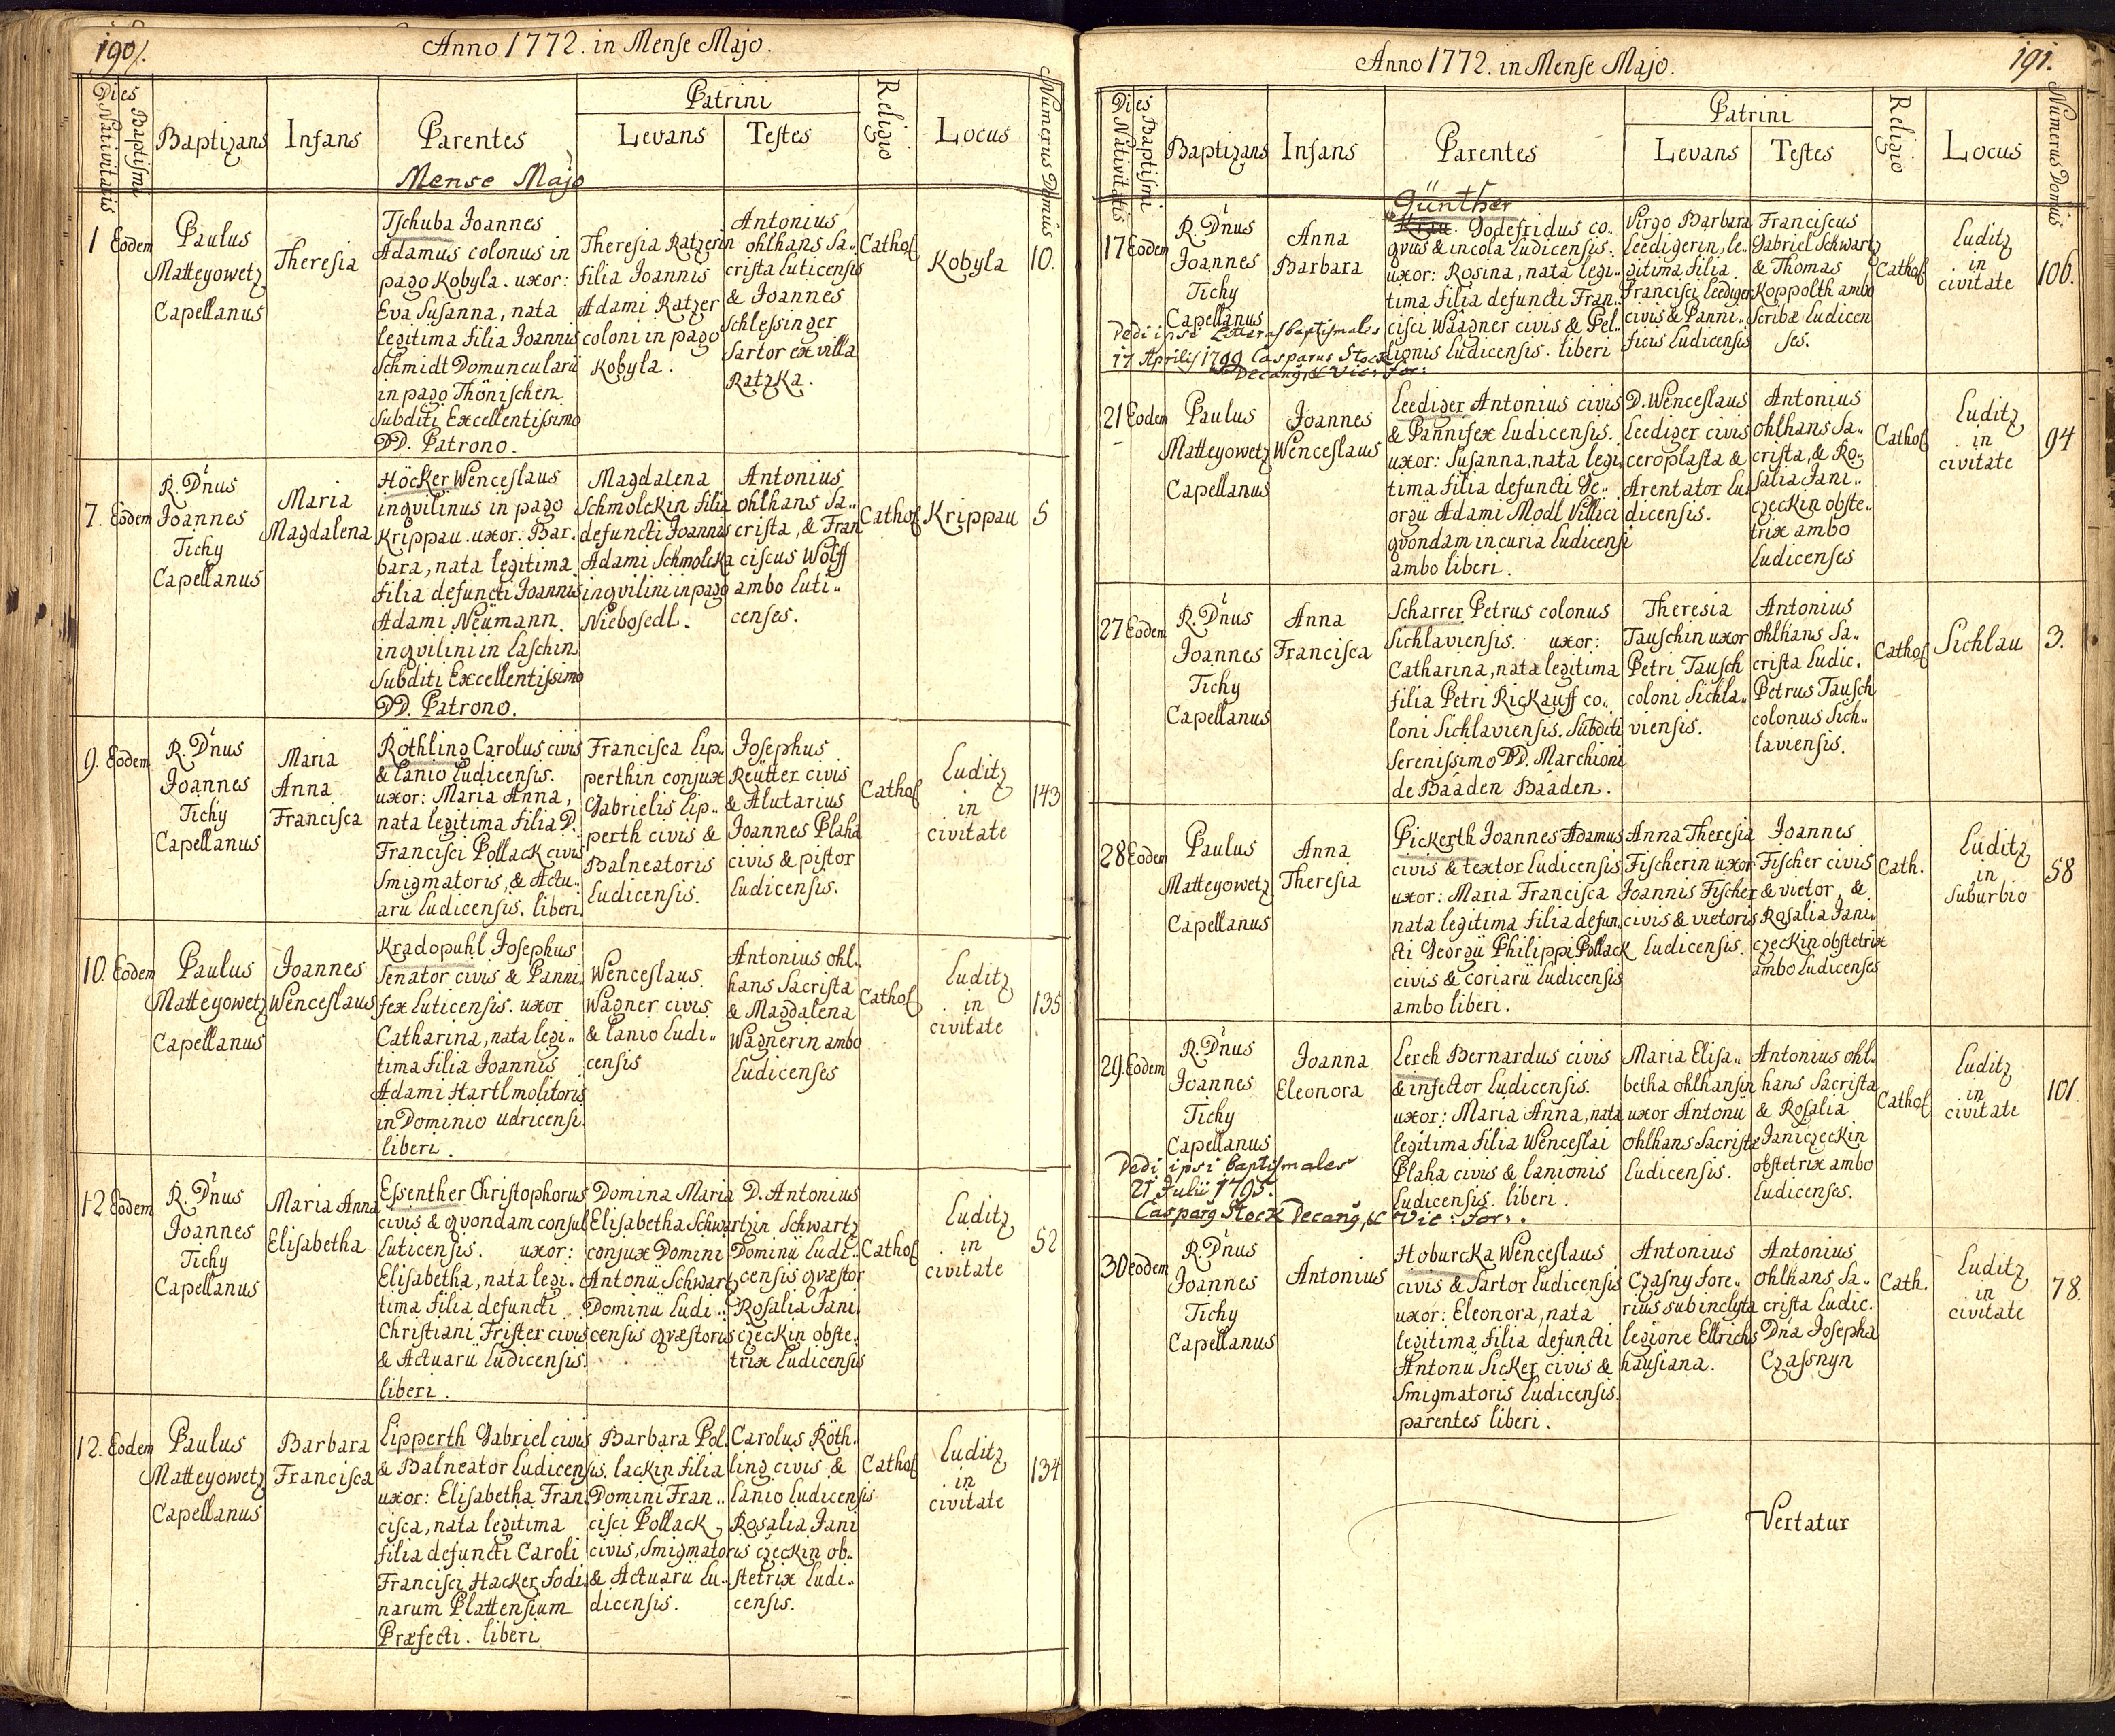 190.
Anno 1772. in Mense Majo.
Dies
Nativitatis
Baptiſmi
Baptizans
Infans
Parentes
Patrini
Levans
Teſtes
Religio
Locus
Numerus Domûs
Mense Majo
1
Eodem
Paulus
Matteyowetz
Capellanus
Thereſia
Tſchuba Joannes
Adamus colonus in
pago Kobyla. uxor:
Eva Suſanna, nata
legitima filia Joannis
Schmidt Domuncularii
in pago Thöniſchen
Subditi Excellentiſsimo
DD. Patrono.
Thereſia Ratzerin
filia Joannis
Adami Ratzer
coloni in pago
Kobyla.
Antonius
ohlhans Sa..
criſta Luticenſis
& Joannes
Schleſsinger
Sartor ex villa
Ratzka.
Cathol
Kobyla
10.
7.
Eodem
R. D'nus
Joannes
Tichy
Capellanus
Maria
Magdalena
Höcker Wenceſlaus
inqvilinus in pago
Krippau. uxor: Bar.
bara, nata legitima
filia defuncti Joannis
Adami Neümann
inqvilini in Laſchin
Subditi Excellentiſsimo
DD. Patrono.
Magdalena
Schmolckin filia
defuncti Joannis
Adami Schmolcka
inqvilini in pago
Niebosedl.
Antonius
ohlhans Sa..
criſta, & Fran
ciſcus Wolff
ambo Luti..
cenſes.
Cathol
Krippau
5
9.
Eodem
R. D'nus
Joannes
Tichy
Capellanus
Maria
Anna
Franciſca
Röthling Carolus civis
& Lanio Ludicenſis.
uxor: Maria Anna,
nata legitima filia D.
Franciſci Pollack civis
Smigmatoris, & Actu..
arii Ludicenſis. liberi.
Franciſca Lip.
perthin conjux
Gabrielis Lip..
perth civis &
Balneatoris
Ludicenſis.
Joſephus
Reütter civis
& Alutarius
Joannes Plaha
civis & piſtor
Ludicenſis.
Cathol
Luditz
in
civitate
143
10.
Eodem
Paulus
Matteyowetz
Capellanus
Joannes
Wenceſlaus
Kradopuhl Joſephus
Senator civis & Panni.
fex Luticenſis. uxor
Catharina, nata legi..
tima filia Joannis
Adami Hartl molitoris
in Dominio udricenſi.
liberi.
Wenceſlaus
Wagner civis
& Lanio Ludi..
cenſis
Antonius ohl.
hans Sacriſta
& Magdalena
Wagnerin ambo
Ludicenſes
Cathol
Luditz
in
civitate
135
12.
Eodem
R. D'nus
Joannes
Tichy
Capellanus
Maria Anna
Eliſabetha
Eſsenther Chriſtophorus
civis & qvondam conſul
Luticenſis. uxor:
Eliſabetha, nata legi..
tima filia defuncti
Chriſtiani Friſter civis
& Actuarii Ludicenſis.
liberi.
Domina Maria
Eliſabetha Schwartzin
conjux Domini
Antonii Schwartz
Dominii Ludi..
cenſis qvæſtoris
D. Antonius
Schwartz
Dominii Ludi..
cenſis qvæſtor
Roſalia Jani.
czeckin obſte.
trix Ludicenſis
Cathol
Luditz
in
civitate
52
12.
Eodem
Paulus
Matteyowetz
Capellanus
Barbara
Franciſca
Lipperth Gabriel civis
& Balneator Ludicenſis.
uxor: Eliſabetha Fran.
ciſca, nata legitima
filia defuncti Caroli
Franciſci Hacker Fodi.
narum Plattenſium
Præfecti. liberi
Barbara Pol.
lackin filia
Domini Fran..
ciſci Pollack,
civis, Smigmatoris
& Actuarii Lu..
dicenſis.
Carolus Röth.
ling civis &
Lanio Ludicenſis
Roſalia Jani
czeckin ob..
ſtetrix Ludi..
cenſis.
Cathol
Luditz
in
civitate
134
191.
Anno 1772. in Mense Majo.
Dies
Nativitatis
Baptiſmi
Baptizans
Infans
Parentes
Patrini
Levans
Teſtes
Religio
Locus
Numerus Domûs
17
Eodem
R. D'nus
Joannes
Tichy
Capellanus
Dedi ipsi Litteras baptiſmales
17 Aprilis 1799 Casparus Stock
Decang, & Vic: For:
Anna
Barbara
Günther
Godefridus co..
qvus & incola Ludicenſis.
uxor: Roſina, nata legi..
tima filia defuncti Fran..
ciſci Wâagner civis & Pel..
lionis Ludicenſis. liberi
Virgo Barbara
Leedigerin, le..
gitima filia
Franciſci Leediger
civis & Panni..
ficis Ludicenſis
Franciſcus
Gabriel Schwartz
& Thomas
Koppolth ambo
Scribæ Ludicen
ſes.
Cathol
Luditz
in
civitate
106.
21
Eodem
Paulus
Matteyowetz
Capellanus
Joannes
Wenceſlaus
Leediger Antonius civis
& Pannifex Ludicenſis.
uxor: Suſanna, nata legi.
tima filia defuncti Ge..
orgii Adami Modl Villici
qvondam in curia Ludicenſi
ambo liberi.
D. Wenceſlaus
Leediger civis
ceroplaſta &
Arentator Lu
dicenſis.
Antonius
ohlhans Sa..
criſta, & Ro..
ſalia Jani..
czeckin obſte..
trix ambo
Ludicenſes
Cathol
Luditz
in
civitate
94
27
Eodem
R. D'nus
Joannes
Tichy
Capellanus
Anna
Franciſca
Scharrer Petrus colonus
Sichlavienſis. uxor:
Catharina, nata legitima
filia Petri Rickauff co..
loni Sichlavienſis. Subditi
Sereniſsimo DD. Marchioni
de Bâaden Bâaden.
Thereſia
Tauſchin uxor
Petri Tauſch
coloni Sichla..
vienſis.
Antonius
ohlhans Sa..
criſta Ludic.
Petrus Tauſch
colonus Sich..
lavienſis.
Cathol
Sichlau
3.
28
Eodem
Paulus
Matteyowetz
Capellanus
Anna
Thereſia
Pickerth Joannes Adamus
civis & textor Ludicenſis
uxor: Maria Franciſca
nata legitima filia defun.
cti Georgii Philippi Pollack
civis & coriarii Ludicenſis
ambo liberi.
Anna Thereſia
Fiſcherin uxor
Joannis Fiſcher
civis & vietoris
Ludicenſis.
Joannes
Fiſcher civis
& vietor, &
Roſalia Jani..
czeckin obſtetrix
ambo Ludicenſes
Cath.
Luditz
in
Suburbio
58
29.
Eodem
R. D'nus
Joannes
Tichy
Capellanus
Dedi ipsi baptiſmales
21 Julii 1795.
Casparg Stock Decang, & Vic: For:.
Joanna
Eleonora
Lerch Bernardus civis
& infector Ludicenſis.
uxor: Maria Anna, nata
legitima filia Wenceſlai
Plaha civis & Lanionis
Ludicenſis. liberi.
Maria Eliſa..
betha ohlhansin
uxor Antonii
ohlhans Sacriſtæ
Ludicenſis.
Antonius ohl.
hans Sacriſta
& Roſalia
Janiczeckin
obſtetrix ambo
Ludicenſes.
Cathol
Luditz
in
civitate
101
30
eodem
R. D'nus
Joannes
Tichy
Capellanus
Antonius
Hoburcka Wenceſlaus
civis & Sartor Ludicenſis
uxor: Eleonora, nata
legitima filia defuncti
Antonii Sicker civis &
Smigmatoris Ludicenſis.
parentes liberi.
Antonius
Czaſny fore..
rius sub inclyta
legione Ellrichs
hauſiana.
Antonius
ohlhans Sa..
criſta Ludic.
Dña Joſepha
Czaſsnyn
Cath.
Luditz
in
civitate
78.
Vertatur